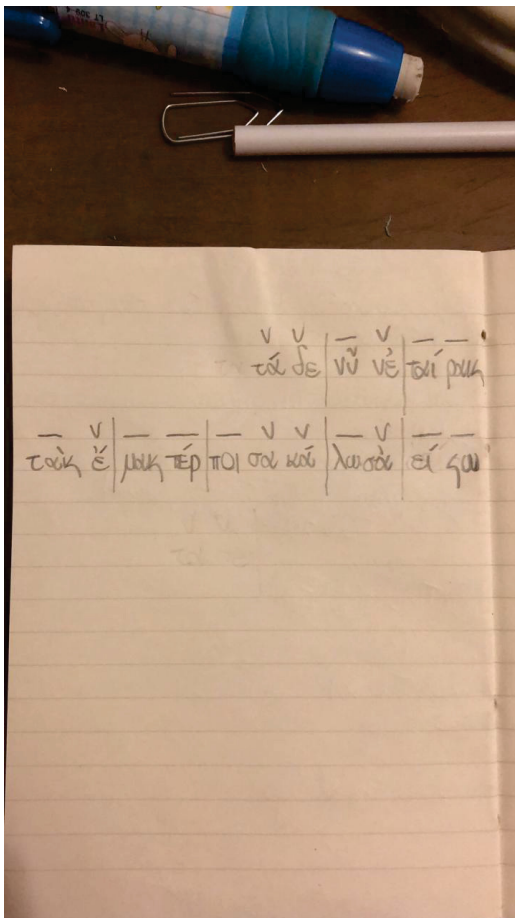 τά δε | νῦ νἐ | ταί ραις
ταὶς ἔ | μαις τέρ | ποι σα κά | λω σἀ | εί σω